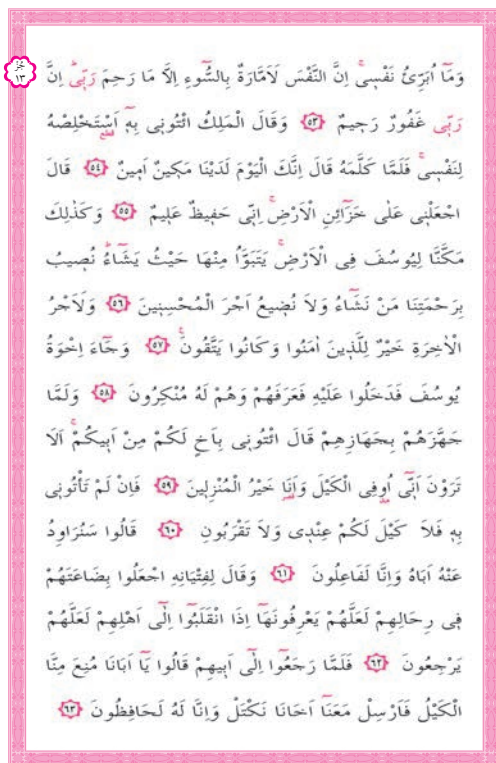 جُزْ
١٣
وَمَٓا اُبَرِّئُ نَفْسٖىۚ اِنَّ النَّفْسَ لَاَمَّارَةٌ بِالسُّٓوءِ اِلَّا مَا رَحِمَ رَبّٖىؕ اِنَّ
رَبّٖى غَفُورٌ رَحٖيمٌ ﴿٥٣﴾ وَقَالَ الْمَلِكُ ائْتُونٖى بِهٖٓ اَسْتَخْلِصْهُ
لِنَفْسٖىۚ فَلَمَّا كَلَّمَهُ قَالَ اِنَّكَ الْيَوْمَ لَدَيْنَا مَكٖينٌ اَمٖينٌ ﴿٥٤﴾ قَالَ
اجْعَلْنٖى عَلٰى خَزَٓائِنِ الْاَرْضِۚ اِنّٖى حَفٖيظٌ عَلٖيمٌ ﴿٥٥﴾ وَكَذٰلِكَ
مَكَّنَّا لِيُوسُفَ فِى الْاَرْضِۚ يَتَبَوَّاُ مِنْهَا حَيْثُ يَشَٓاءُؕ نُصٖيبُ
بِرَحْمَتِنَا مَنْ نَشَٓاءُ وَلَا نُضٖيعُ اَجْرَ الْمُحْسِنٖينَ ﴿٥٦﴾ وَلَاَجْرُ
الْاٰخِرَةِ خَيْرٌ لِلَّذٖينَ اٰمَنُوا وَكَانُوا يَتَّقُونَۚ ﴿٥٧﴾ وَجَٓاءَ اِخْوَةُ
يُوسُفَ فَدَخَلُوا عَلَيْهِ فَعَرَفَهُمْ وَهُمْ لَهُ مُنْكِرُونَ ﴿٥٨﴾ وَلَمَّا
جَهَّزَهُمْ بِجَهَازِهِمْ قَالَ ائْتُونٖى بِاَخٍ لَكُمْ مِنْ اَبٖيكُمْۚ اَلَا
تَرَوْنَ اَنّٖٓى اُوفِى الْكَيْلَ وَاَنَا خَيْرُ الْمُنْزِلٖينَ ﴿٥٩﴾ فَاِنْ لَمْ تَاْتُونٖى
بِهٖ فَلَا كَيْلَ لَكُمْ عِنْدٖى وَلَا تَقْرَبُونِ ﴿٦٠﴾ قَالُوا سَنُرَاوِدُ
عَنْهُ اَبَاهُ وَاِنَّا لَفَاعِلُونَ ﴿٦١﴾ وَقَالَ لِفِتْيَانِهِ اجْعَلُوا بِضَاعَتَهُمْ
فٖى رِحَالِهِمْ لَعَلَّهُمْ يَعْرِفُونَهَٓا اِذَا انْقَلَبُٓوا اِلٰٓى اَهْلِهِمْ لَعَلَّهُمْ
يَرْجِعُونَ ﴿٦٢﴾ فَلَمَّا رَجَعُٓوا اِلٰٓى اَبٖيهِمْ قَالُوا يَٓا اَبَانَا مُنِعَ مِنَّا
الْكَيْلُ فَاَرْسِلْ مَعَنَٓا اَخَانَا نَكْتَلْ وَاِنَّا لَهُ لَحَافِظُونَ ﴿٦٣﴾